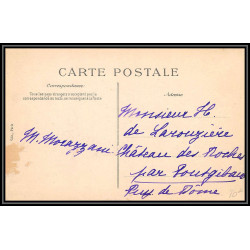 CARTE POSTALE
Correspondance
Adresse
M. Morazzani
Monsieur H.
de Larouzière
Château des Roches
par Pontgibaud
Puy de Dôme